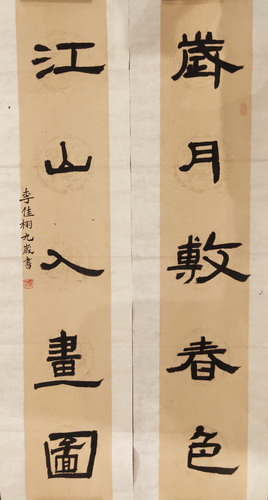 歲月敷春色
江山入畫圖
李佳栩九歲書